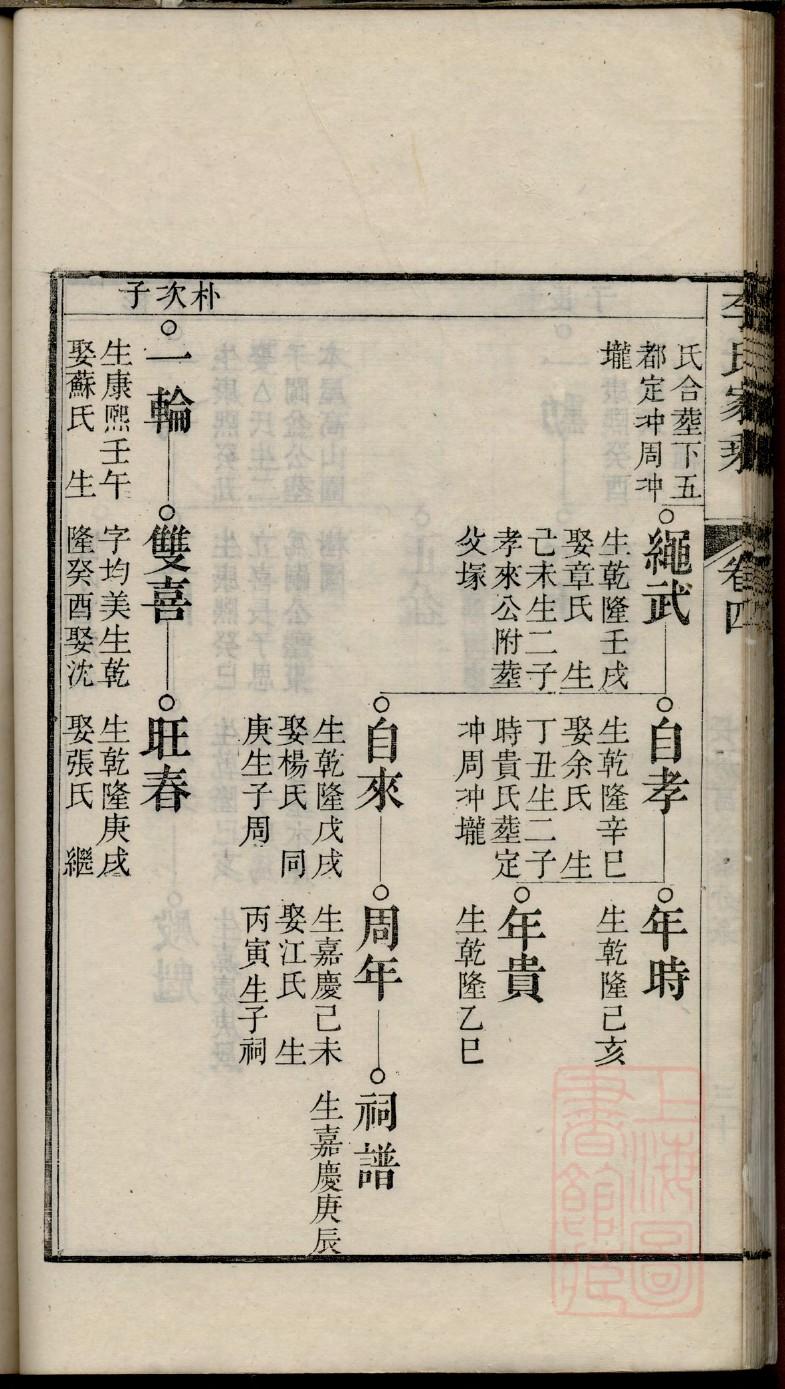 李氏家乘
卷四
氏合塟下五
都定冲周冲
壠
繩武
生乾隆壬戌
娶章氏 生
己未生二子
孝來公附塟
殳塚
自孝
生乾隆辛巳
娶余氏 生
丁丑生二子
時貴氏塟定
冲周冲壠
年時
生乾隆己亥
年貴
生乾隆乙巳
自來
生乾隆戊戌
娶楊氏 同
庚生子周
周年
生嘉慶己未
娶江氏 生
丙寅生子祠
祠譜
生嘉慶庚辰
朴次子
一輪
生康熙壬午
娶蘇氏 生
雙喜
字均美生乾
隆癸酉娶沈
旺春
生乾隆庚戌
娶張氏 繼
上海圖
書館藏